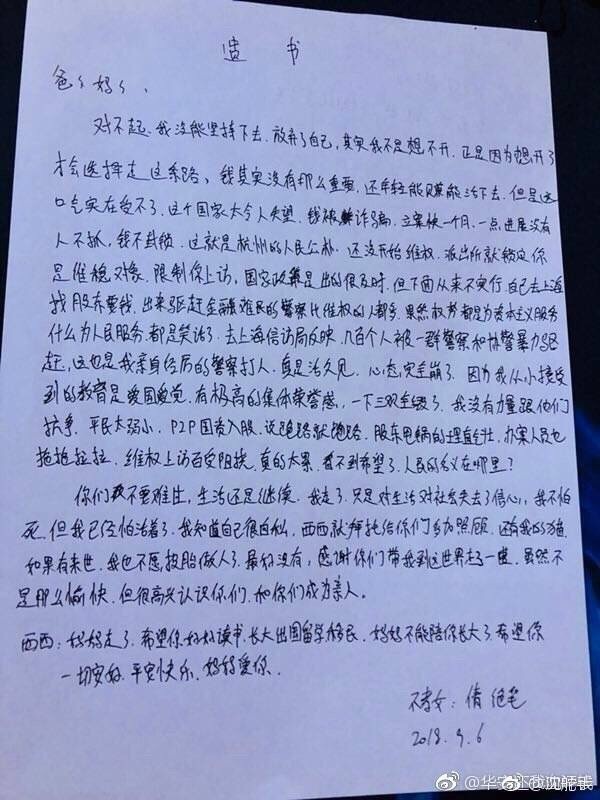 遗书
爸々妈々、
对不起、我没能坚持下去、放弃了自己,其实我不是想不开、正是因为想开了
才会选择走这条路、钱其实没有那么重要、还年轻能赚能活下去、但是这
口气实在受不了、这个国家太令人失望、钱被诈骗、立案快一个月、一点进展没有
人不抓,钱不封锁、这就是杭州的人民公仆、还没开始维权、派出所就锁定你
是维稳对象、限制你上访、国家政策是出的很及时、但下面从来不实行、自己去上海
找股东要钱、出来驱赶金融难民的警察比维权的人都多、果然权势都是为资本主义服务
什么为人民服务、都是笑话了、去上海信访局反映、几百个人被一群警察和协警暴力驱
赶、这也是我亲身经历的警察打人、真是活久见、心态完全崩了、因为我从小接受
到的教育是爱国爱党、有极高的集体荣誉感、一下三观全毁了、我没有力量跟他们
抗争、平民太弱小、P2P国资入股、说跑路就跑路、股东甩锅的理直气壮、办案人员也
拖拖拉拉、维权上访百受阻挠、真的太累、看不到希望了、人民的名义在哪里?
你们不要难过、生活还是继续、我走了、只是对生活对社会失去了信心,我不怕
死、但我已经怕活着了、我知道自己很自私、西西就拜托给你们多加照顾、还有我的猫
如果有来世、我也不愿投胎做人了、最好没有,感谢你们带我到这世界走了一遭、虽然不
是那么愉快、但很高兴认识你们、和你们成为亲人、
西西:妈妈走了、希望你好好读书、长大出国留学移民、妈妈不能陪你长大了、希望你
一切安好、平安快乐、妈妈爱你、
不孝女:倩 绝笔
2018.9.6